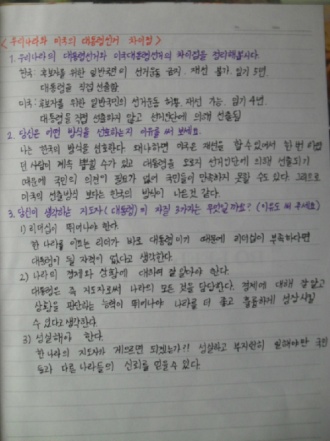 < 우리나라와 미국의 대통령선거 차이점 >
1. 우리나라의 대통령선거와 미국대통령선거의 차이점을 정리해봅시다.
한국: 후보자를 위한 일반국민의 선거운동 금지, 재선 불가, 임기 5년,
대통령을 직접 선출함
미국: 후보자를 위한 일반국민의 선거운동 허용, 재선 가능, 임기 4년,
대통령을 직접 선출하지 않고 선거인단에 의해 선출됨
2. 당신은 어떤 방식을 선호하는지 이유를 써 보세요.
나는 한국의 방식을 선호한다. 왜냐하면 미국은 재선을 할 수 있어서 한 번 이었
던 사람이 계속 뽑힐 수가 있고 대통령을 오로지 선거인단에 의해 선출되기
때문에 국민의 의견이 필요가 없어 국민들이 만족하지 못할 수도 있다. 그러므로
미국의 선출방식 보다는 한국의 방식이 나은것 같다.
3. 당신이 생각하는 지도자(대통령)의 자질 3가지는 무엇일까요? (이유도 써 주세요)
1) 리더십이 뛰어나야 한다.
한 나라를 이끄는 리더가 바로 대통령이기 때문에 리더십이 부족하다면
대통령이 될 자격이 없다고 생각한다.
2) 나라의 경제와 상황에 대하여 잘 알아야 한다.
대통령은 즉 지도자로써 나라의 모든 것을 담당한다. 경제에 대해 잘 알고
상황을 판단하는 능력이 뛰어나야 나라를 더 좋고 훌륭하게 성장시킬
수 있다고 생각한다.
3) 성실해야 한다.
한 나라의 지도자가 게으르면 되겠는가?! 성실하고 부지런히 일해야만 국민
들과 다른 나라들의 신뢰를 얻을 수 있다.